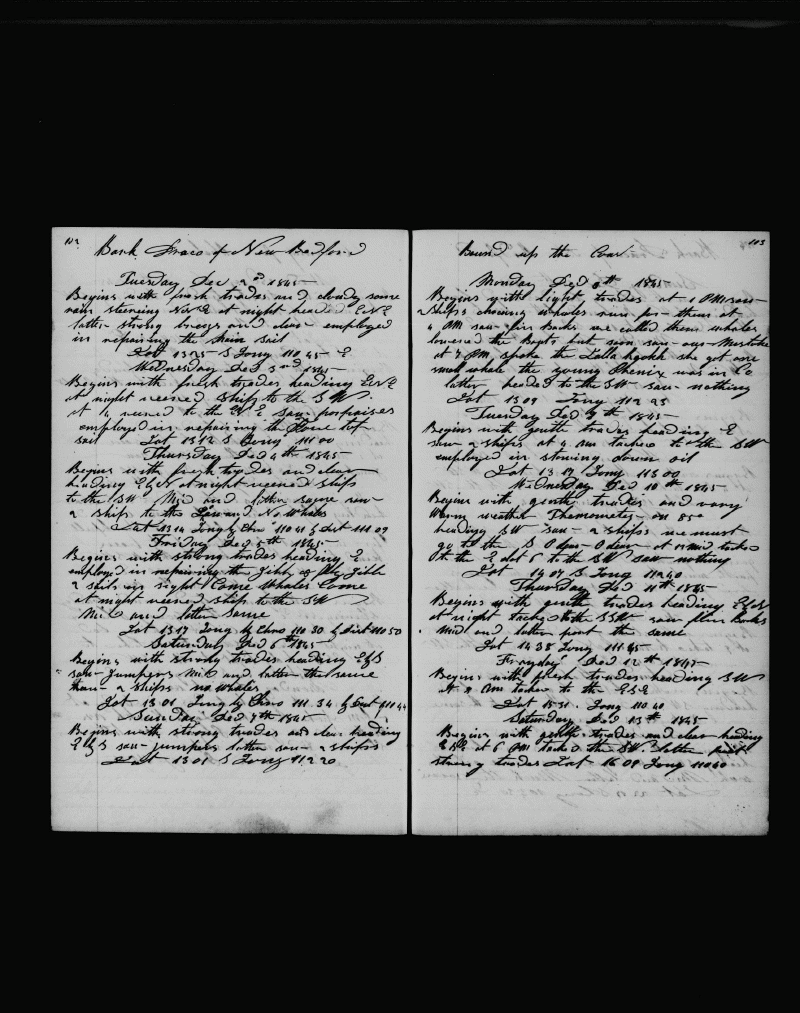 102
Bark Draco of New Bedford
Tuesday Dec 2nd 1845
Begins with fresh trades and cloudy some
rain steering NNE at night headed ENE
latter strong breezes and clear employed
in repairing the Main sail
Lat 13 25 S Long 110 45 E
Wednesday Dec 3rd 1845
Begins with fresh trades heading ENE
at night veered ship to the SW
at 4 veered to the NE saw porpoises
employed in repairing the Fore top
sail Lat 13 12 S Long 111 00
Thursday Dec 4th 1845
Begins with fresh trades and clear
heading EbN at night veered ship
to the SW Mid and latter same saw
2 ships to the Leward No Whales
Lat 13 14 Long by Chro 110 41 by Dist 111 09
Friday Dec 5th 1845
Begins with strong trades heading E
employed in repairing the Jibb & Flg Jibb
2 sails in sight Come Whales Come
at night veered ship to the SW
Mid and latter same
Lat 13 17 Long by Chro 110 30 by Dist 110 50
Saturday Dec 6th 1845
Begins with strong trades heading EbS
saw Jumpers Mid and latter the same
2 ships no whales
Lat 13 06 Long by Chro 111 34 by Dist 111 44
Sunday Dec 7th 1845
Begins with strong trades and clear heading
EbS saw jumpers latter saw 2 ships
Lat 13 01 S Long 112 20
103
Bound up the Coast
Monday Dec 8th 1845
Begins with light trades at 1 PM saw
2 ships chasing whales run for them at
4 PM saw fin Backs we called them whales
lowered the Boats but soon saw our Mistake
at 7 PM spoke the she got one
small whale the young Phenix was in Co
latter headed to the SW saw nothing
Lat 13 09 Long 112 25
Tuesday Dec 9th 1845
Begins with gentle trades heading E
saw 2 ships at 4 AM tacked to the SW
employed in stowing down oil
Lat 13 17 Long 113 00
Wednesday Dec 10th 1845
Begins with gentle trades and very
Warm weather Thermometer on 85°
heading SW saw 2 ships we must
go to the S O dear O dear at Mid tacked
to the E at 6 to the SW saw nothing
Lat 14 07 S Long 112 40
Thursday Dec 11th 1845
Begins with gentle trades heading EbN
at night tacked to the SSW saw finn Backs
Mid and latter part the same
Lat 14 38 Long 111 45
Fryday Dec 12th 1845
Begins with fresh trades heading SW
at 8 AM tacked to the ESE
Lat 15 31 Long 110 40
Saturday Dec 13th 1845
Begins with gentle trades and clear heading
ESE at 6 PM tacked to the SW latter part
strong trades Lat 16 09 Long 110 40